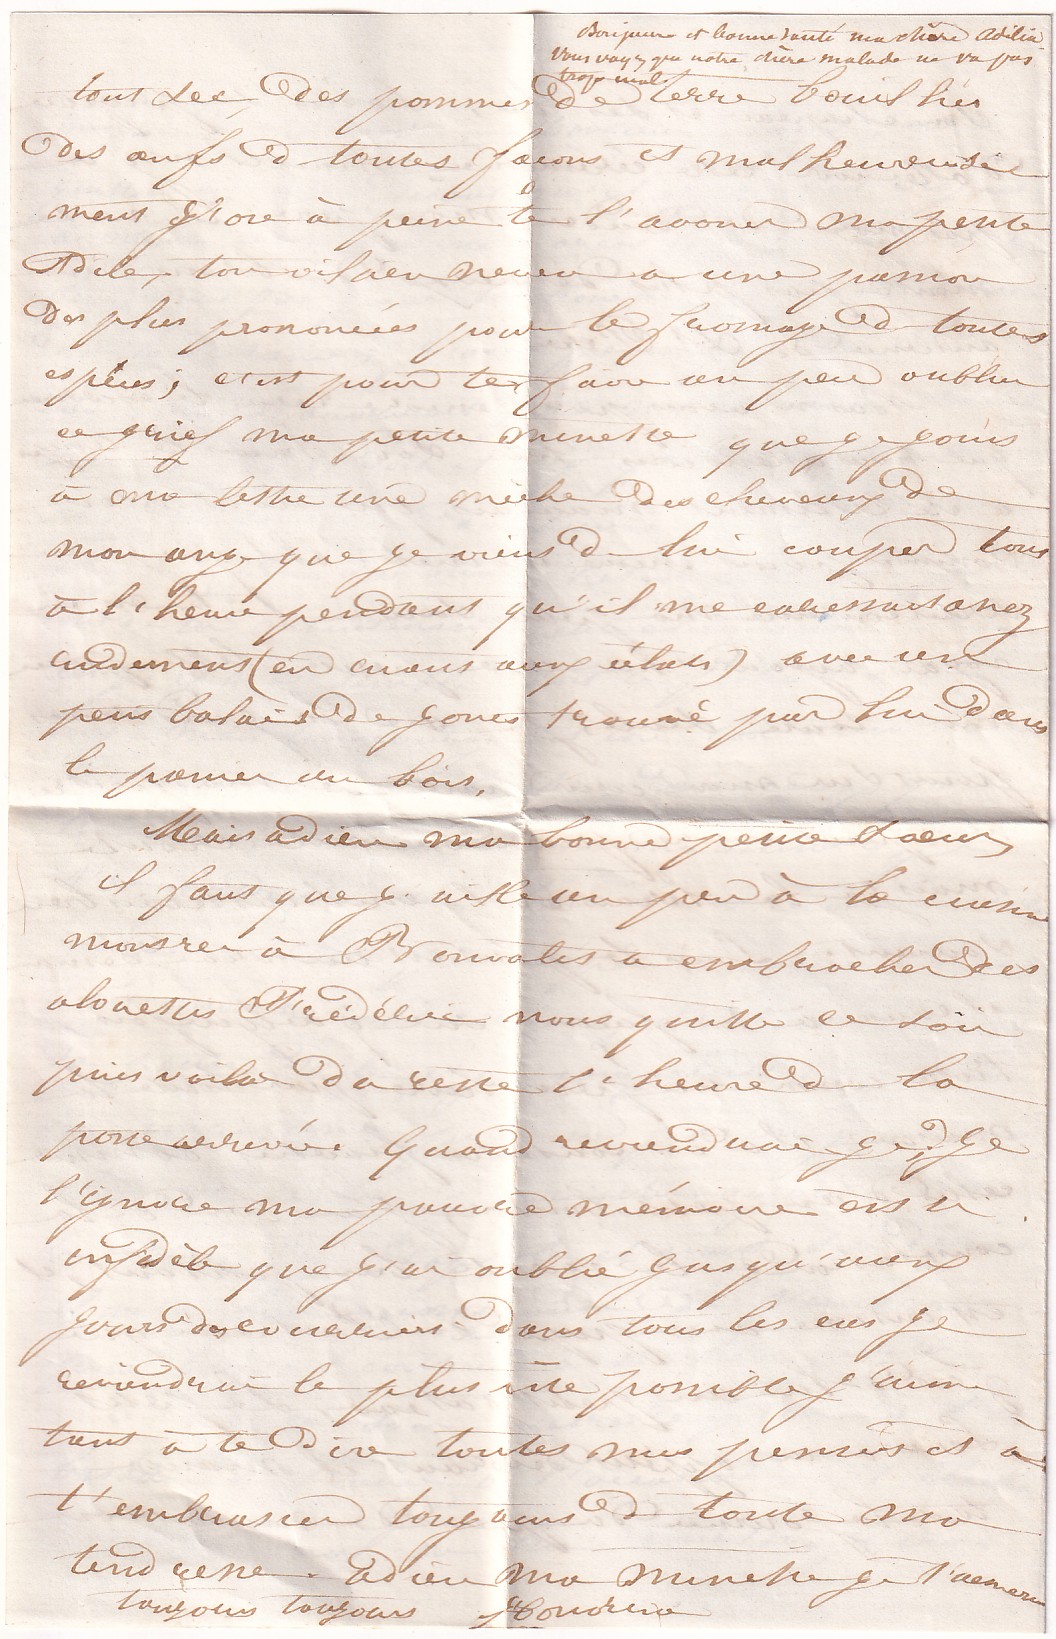 Bonjour et bonne santé ma chère Adélia
vous voyez que notre chère malade ne va pas
trop mal
tout sec, des pommes de terre bouillies
des œufs d toutes façons et malheureuse
ment j'ose à peine te l'avouer ma petite
Adele, ton vilain neveu a une passion
des plus prononcées pour le fromage d toutes
espèces; c'est pour te faire un peu oublier
ce grief ma petite minette que je joins
à ma lettre une mèche des cheveux de
mon ange que je viens d lui couper tout
à l'heure pendant qu'il me caressait assez
rudement (en riant aux éclats) avec un
petit balais de joncs trouvé par lui dans
le panier au bois.
Mais adieu ma bonne petite sœur
il faut que j'aille un peu à la cuisine
montrer à à embrocher des
alouettes Frédéric nous quitte ce soir
puis voila du reste l'heure d la
poste arrivée. Quand reviendrai je? Je
l'ignore ma pauvre mémoire est si
infidèle que j'ai oublié jusqu'aux
jours des courriers dans tous les cas je
reviendrai le plus vite possible j'aime
tant à te dire toutes mes pensées et à
t'embrasser toujours d toute ma
tendresse. adieu ma minette je t'aimerai
toujours toujours Honorine